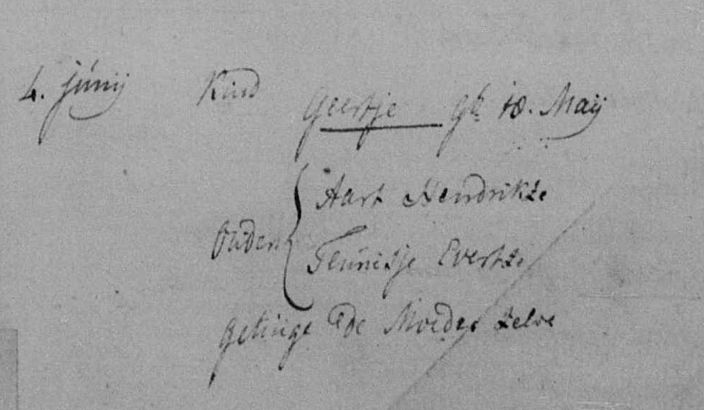 4. Junij Kind Geertje gb. 18. Maij
Aart Hendrikze
Ouders
Teunisje Evertze
getuige de Moeder zelve